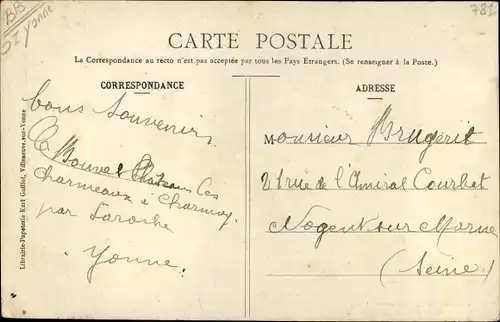 BB
Yonne
781
CARTE POSTALE
La Correspondance au recto n'est pas acceptée par tous les Pays Etrangers. (Se renseigner à la Poste.)
CORRESPONDANCE
ADRESSE
Librairie-Papeterie Karl Guillot, Villeneuve-sur-Yonne
bons Souvenirs
Bouvet Château les
Charmeaux à Charmoy
par Laroche
Yonne.
Monsieur Brugerit
21 rue de l'Amiral Courbet
Nogent sur Marne
(Seine)